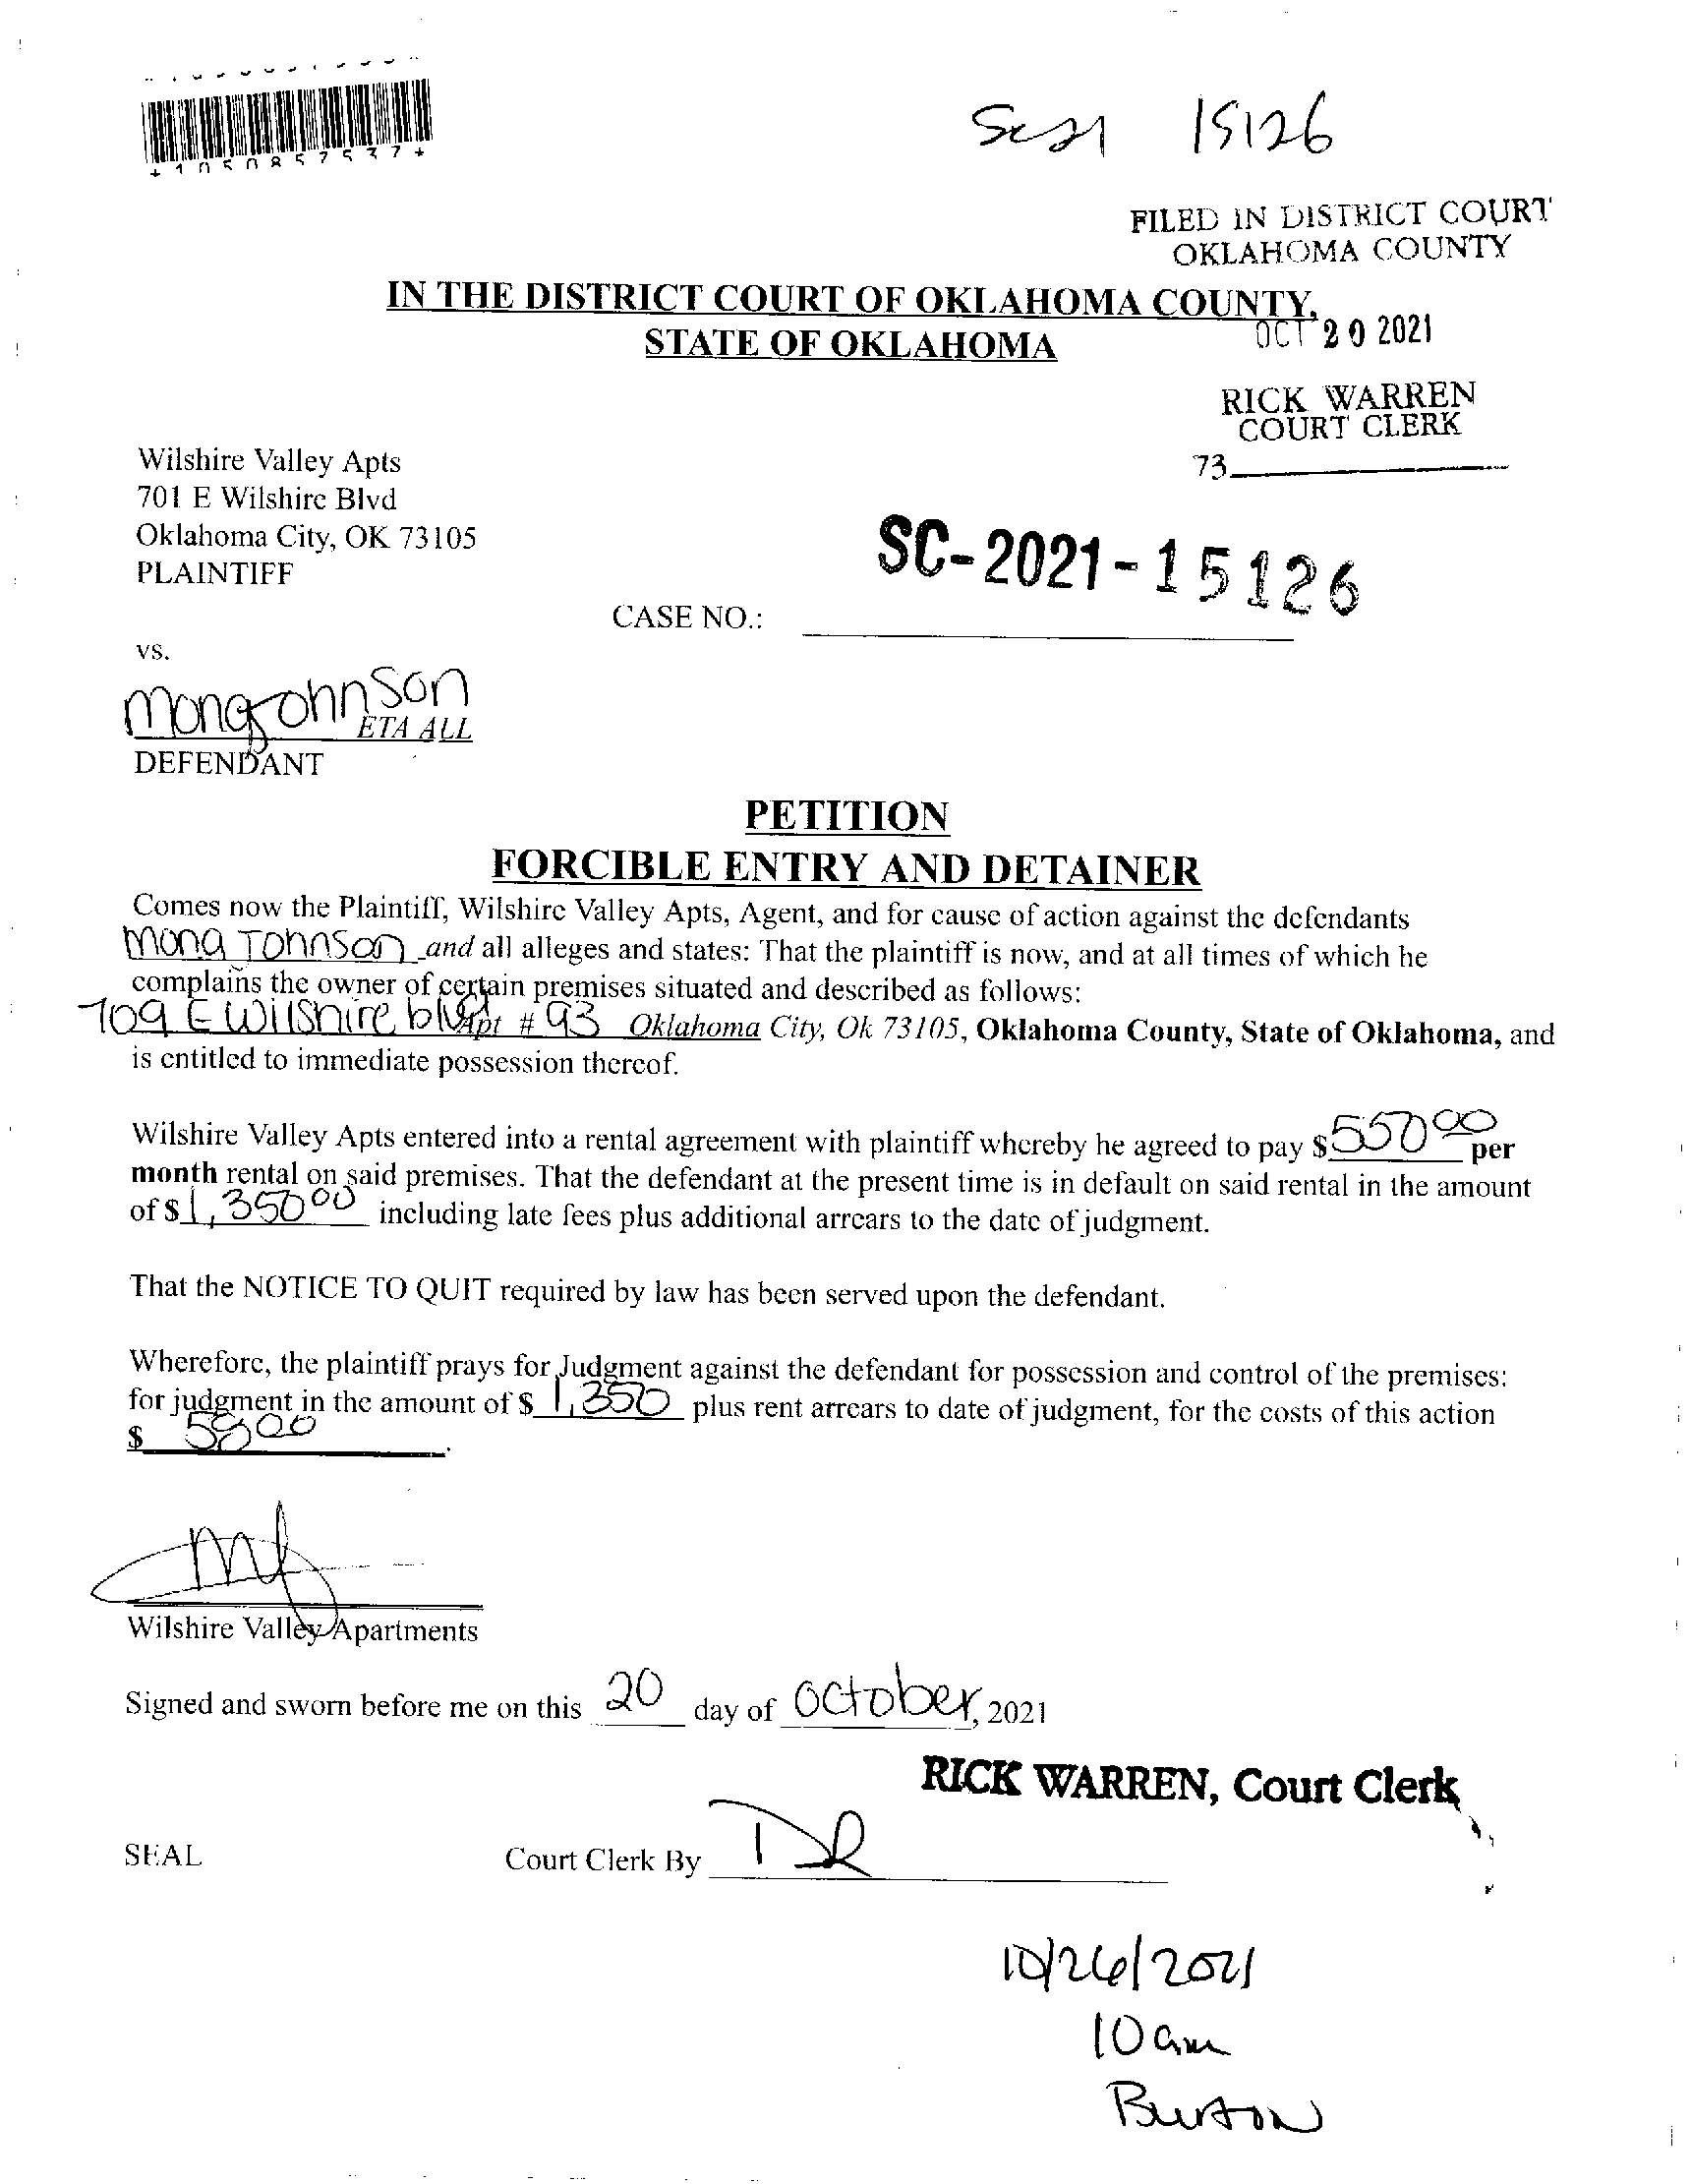 *1050857537*
SC21 15126
FILED IN DISTRICT COURT
OKLAHOMA COUNTY
IN THE DISTRICT COURT OF OKLAHOMA COUNTY,
STATE OF OKLAHOMA
OCT 20 2021
RICK WARREN
COURT CLERK
73
Wilshire Valley Apts
701 E Wilshire Blvd
Oklahoma City, OK 73105
PLAINTIFF
SC-2021-15126
CASE NO.:
vs.
Mona Johnson
ETA ALL
DEFENDANT
PETITION
FORCIBLE ENTRY AND DETAINER
Comes now the Plaintiff, Wilshire Valley Apts, Agent, and for cause of action against the defendants
Mona Johnson and all alleges and states: That the plaintiff is now, and at all times of which he
complains the owner of certain premises situated and described as follows:
709 E Wilshire blvd Apt # 93 Oklahoma City, Ok 73105, Oklahoma County, State of Oklahoma, and
is entitled to immediate possession thereof.
Wilshire Valley Apts entered into a rental agreement with plaintiff whereby he agreed to pay $ 550 00 per
month rental on said premises. That the defendant at the present time is in default on said rental in the amount
of $ 1,350 00 including late fees plus additional arrears to the date of judgment.
That the NOTICE TO QUIT required by law has been served upon the defendant.
Wherefore, the plaintiff prays for Judgment against the defendant for possession and control of the premises:
for judgment in the amount of $ 1,350 plus rent arrears to date of judgment, for the costs of this action
$ 58 00.
Wilshire Valley Apartments
Signed and sworn before me on this 20 day of October, 2021
RICK WARREN, Court Clerk
SEAL
Court Clerk By
10/26/2021
10 am
Burton